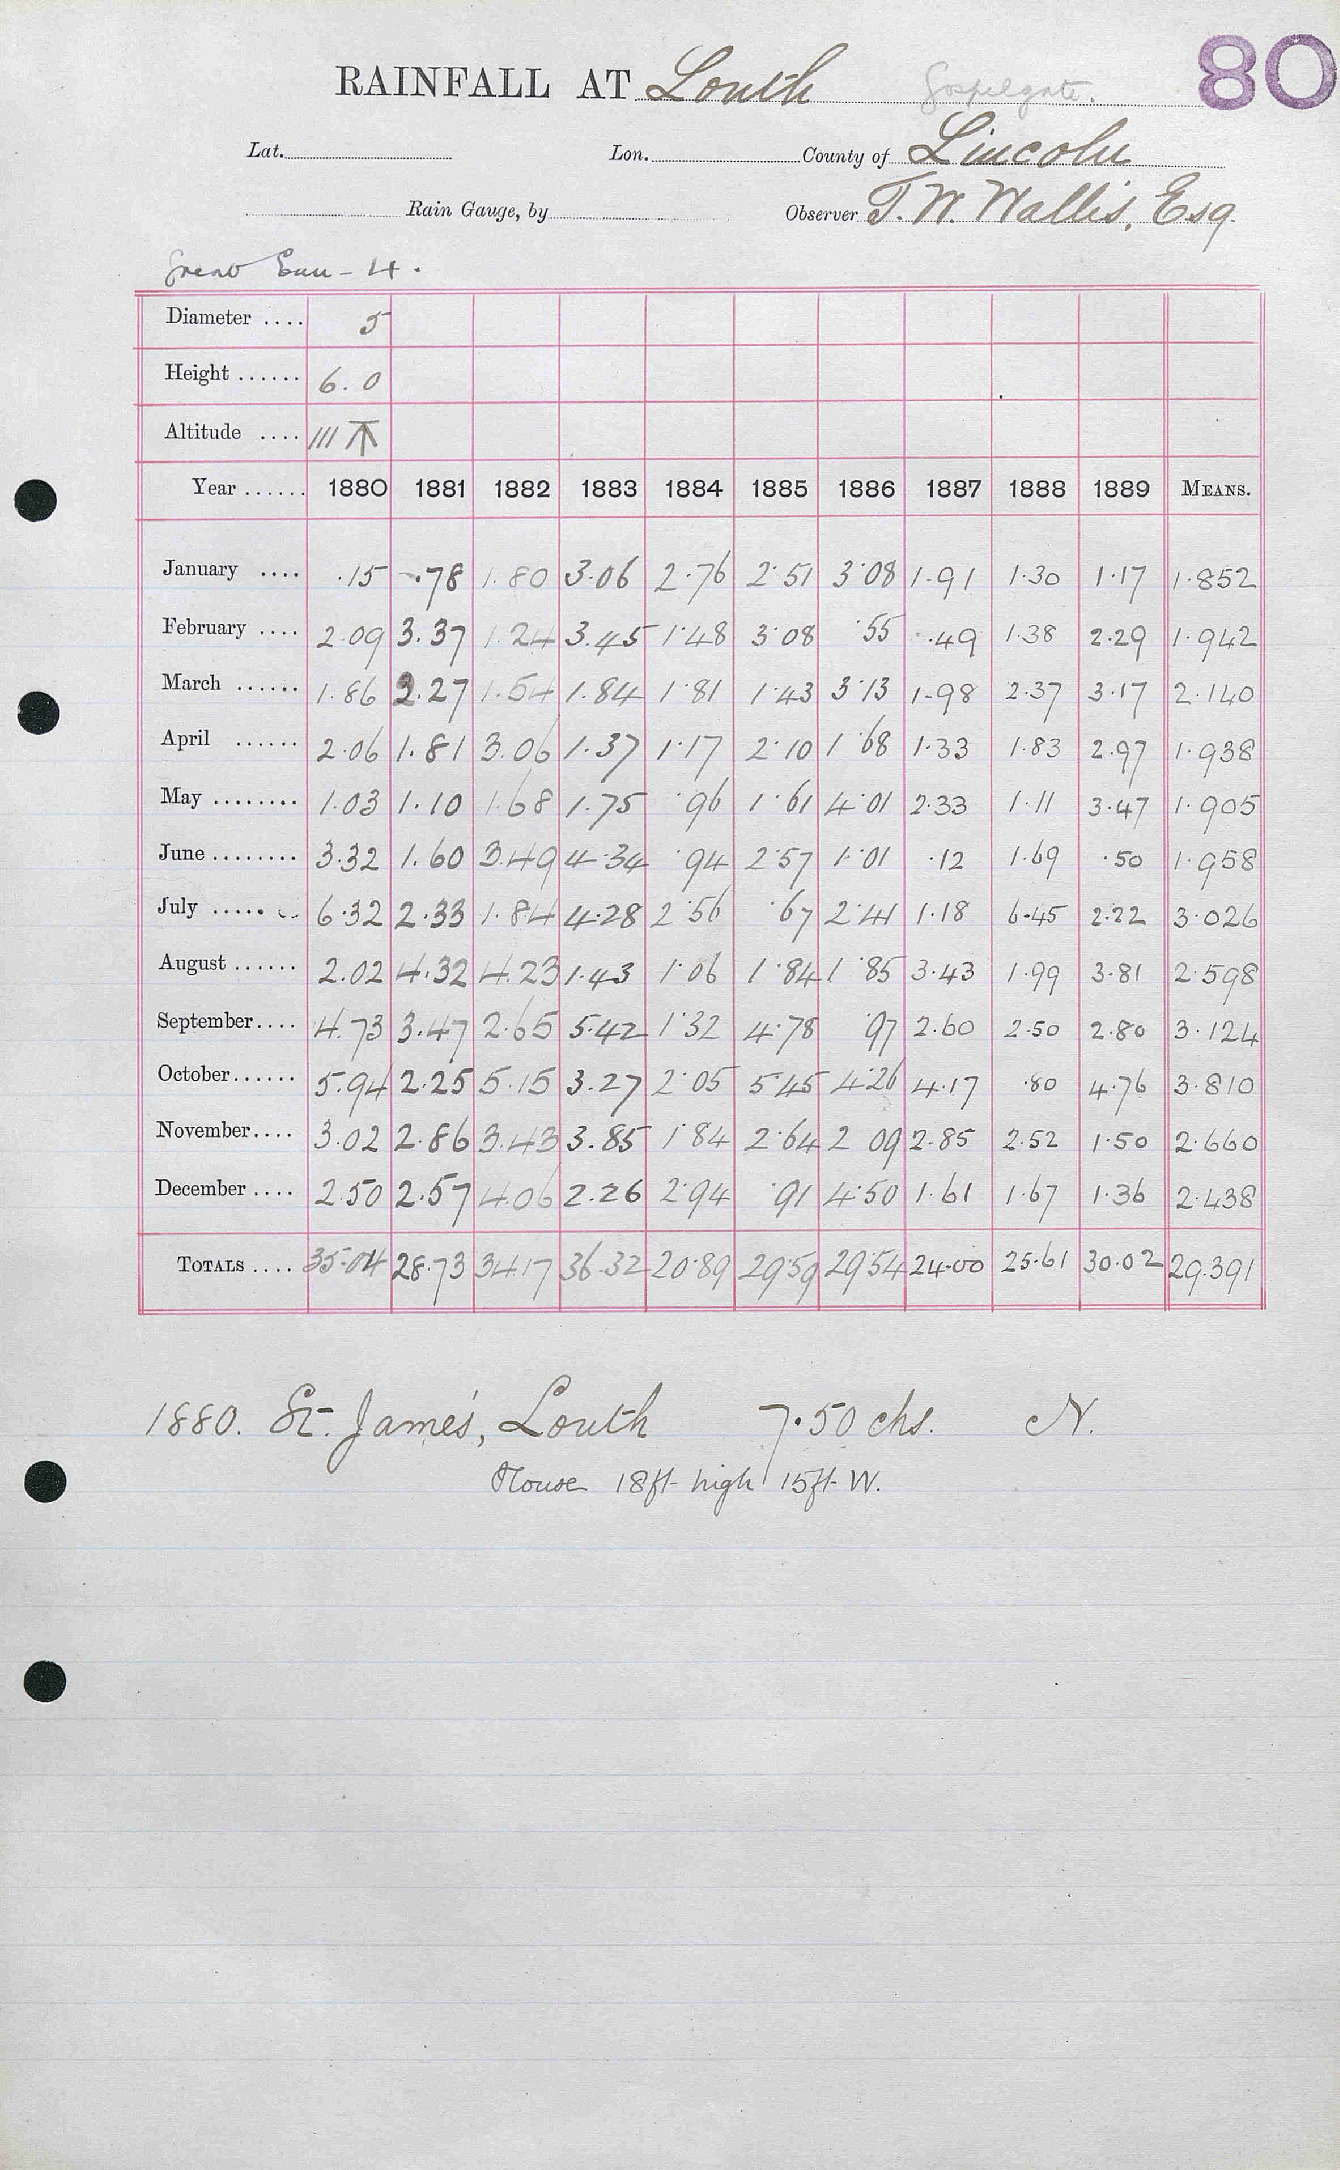 80
RAINFALL AT Louth Gospelgate.
Lat. Lon. County of Lincoln
Rain Gauge, by Observer T. W. Wallis, Esq.
Great Eau - 4.
Diameter .... 5
Height ...... 6.0
Altitude .... 111
Year ...... 1880 1881 1882 1883 1884 1885 1886 1887 1888 1889 MEANS.
January .... .15 .78 1.80 3.06 2.76 2.51 3.08 1.91 1.30 1.17 1.852
February .... 2.09 3.37 1.24 3.45 1.48 3.08 .55 .49 1.38 2.29 1.942
March ...... 1.86 2.27 1.54 1.84 1.81 1.43 3.13 1.98 2.37 3.17 2.140
April ...... 2.06 1.81 3.06 1.37 1.17 2.10 1.68 1.33 1.83 2.97 1.938
May ........ 1.03 1.10 1.68 1.75 .96 1.61 4.01 2.33 1.11 3.47 1.905
June ........ 3.32 1.60 3.49 4.34 .94 2.57 1.01 .12 1.69 .50 1.958
July ........ 6.32 2.33 1.84 4.28 2.56 .67 2.41 1.18 6.45 2.22 3.026
August ...... 2.02 4.32 4.23 1.43 1.06 1.84 1.85 3.43 1.99 3.81 2.598
September .... 4.73 3.47 2.65 5.42 1.32 4.78 .97 2.60 2.50 2.80 3.124
October ...... 5.94 2.25 5.15 3.27 2.05 5.45 4.26 4.17 .80 4.76 3.810
November .... 3.02 2.86 3.43 3.85 1.84 2.64 2.09 2.85 2.52 1.50 2.660
December .... 2.50 2.57 4.06 2.26 2.94 .91 4.50 1.61 1.67 1.36 2.438
TOTALS .... 35.04 28.73 34.17 36.32 20.89 29.59 29.54 24.00 25.61 30.02 29.391
1880. St. James', Louth 7.50 chs. N.
House 18ft high 15ft W.